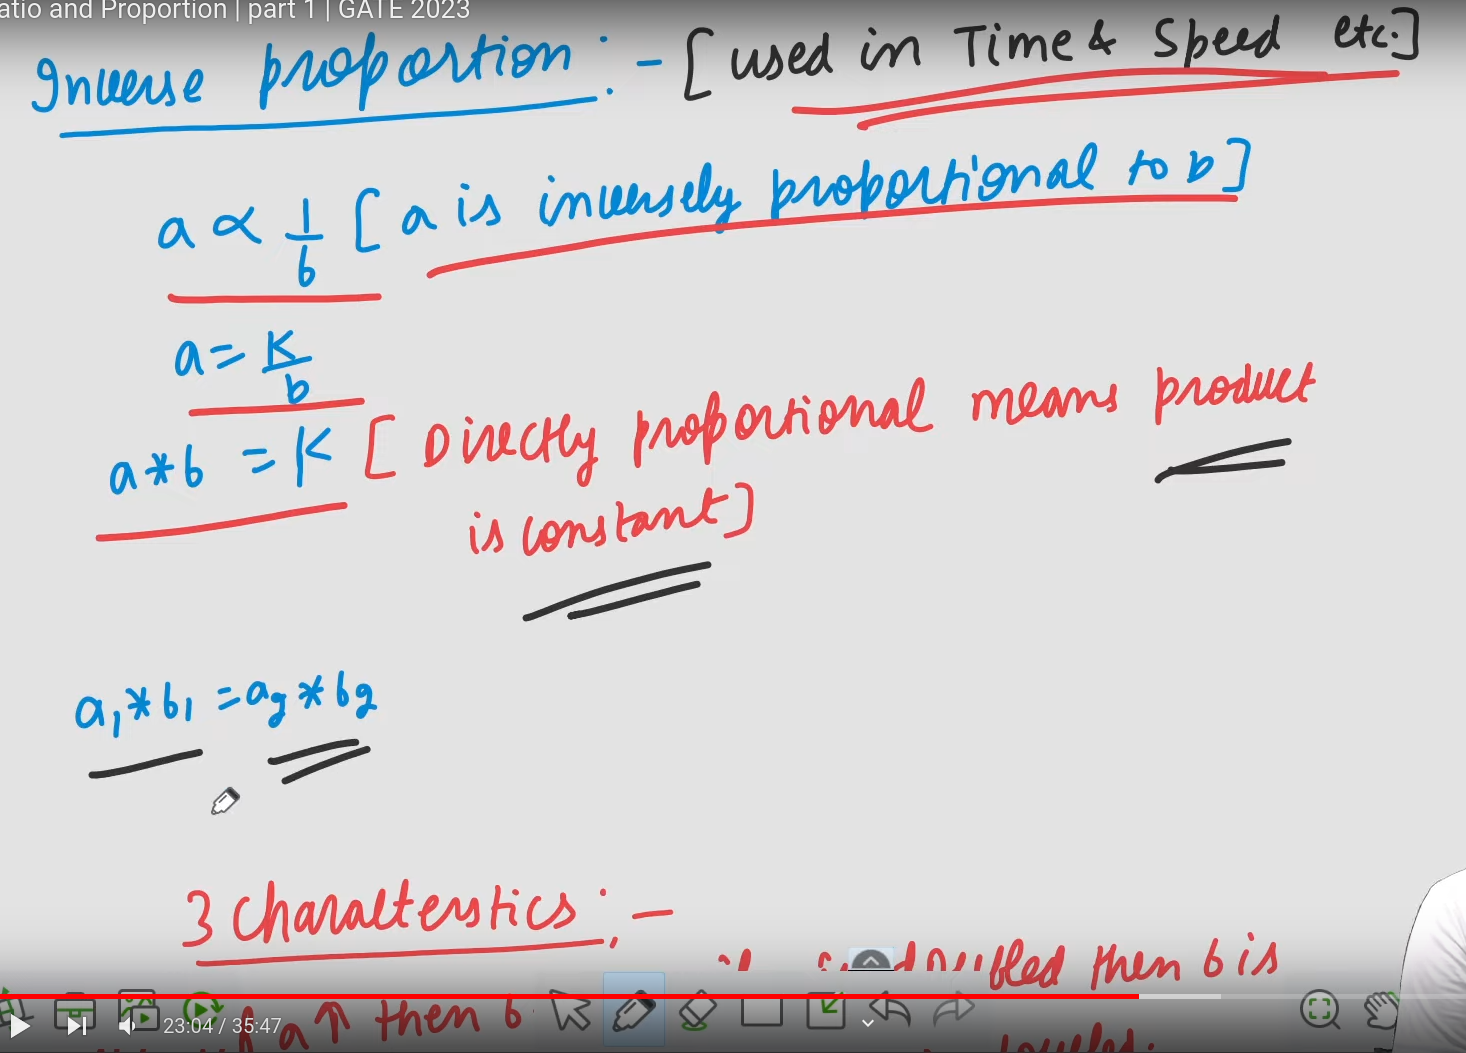 atio and Proportion | part 1 | GATE 2023
Inverse proportion :- [used in Time & Speed etc.]
a ∝ 1/b [a is inversely proportional to b]
a = K/b
a*b = K [Directly proportional means product
is constant]
a₁*b₁ = a₂*b₂
3 Characterstics :-
doubled then b is
a↑ then b
23:04 / 35:47